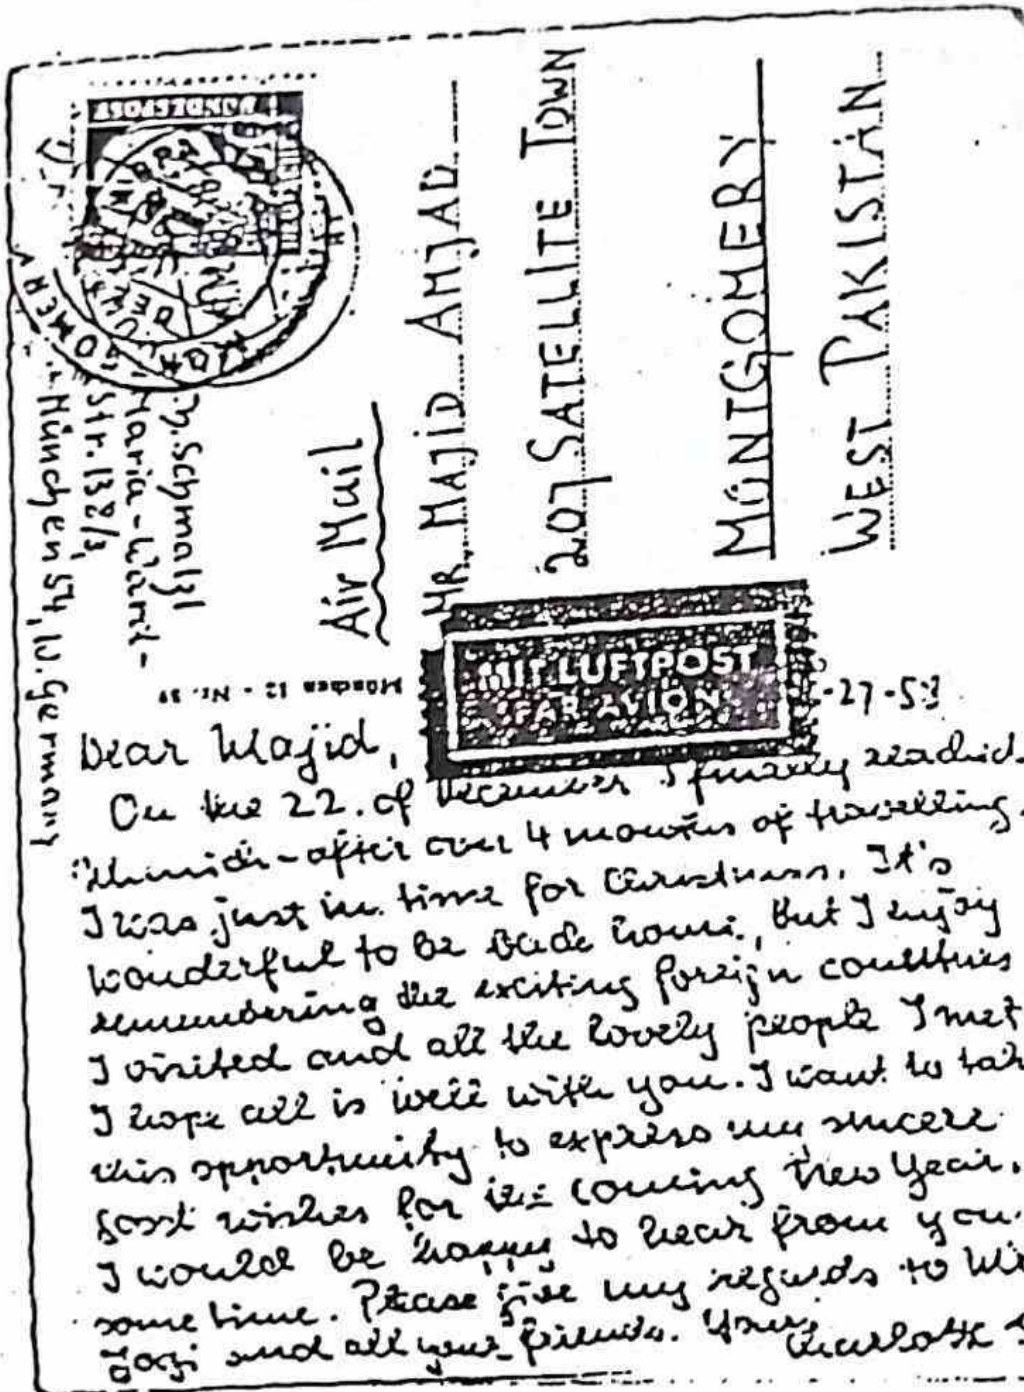 BUNDESPOST
Air Mail
MR. MAJID AMJAD
207 SATELLITE TOWN
MONTGOMERY
WEST PAKISTAN
Schmalzl
Maria-Ward-
Str. 132/3
München 54, W. Germany
München 12 - Nr. 39
MIT LUFTPOST
PAR AVION
-27-58
Dear Majid,
On the 22. of December I finally reached
Munich - after over 4 months of travelling.
I was just in time for Christmas. It's
wonderful to be back home, but I enjoy
remembering the exciting foreign countries
I visited and all the lovely people I met
I hope all is well with you. I want to take
this opportunity to express my sincere
good wishes for the coming New Year.
I would be happy to hear from you
some time. Please give my regards to Mr
Gogi and all your friends. Yours
Charlotte